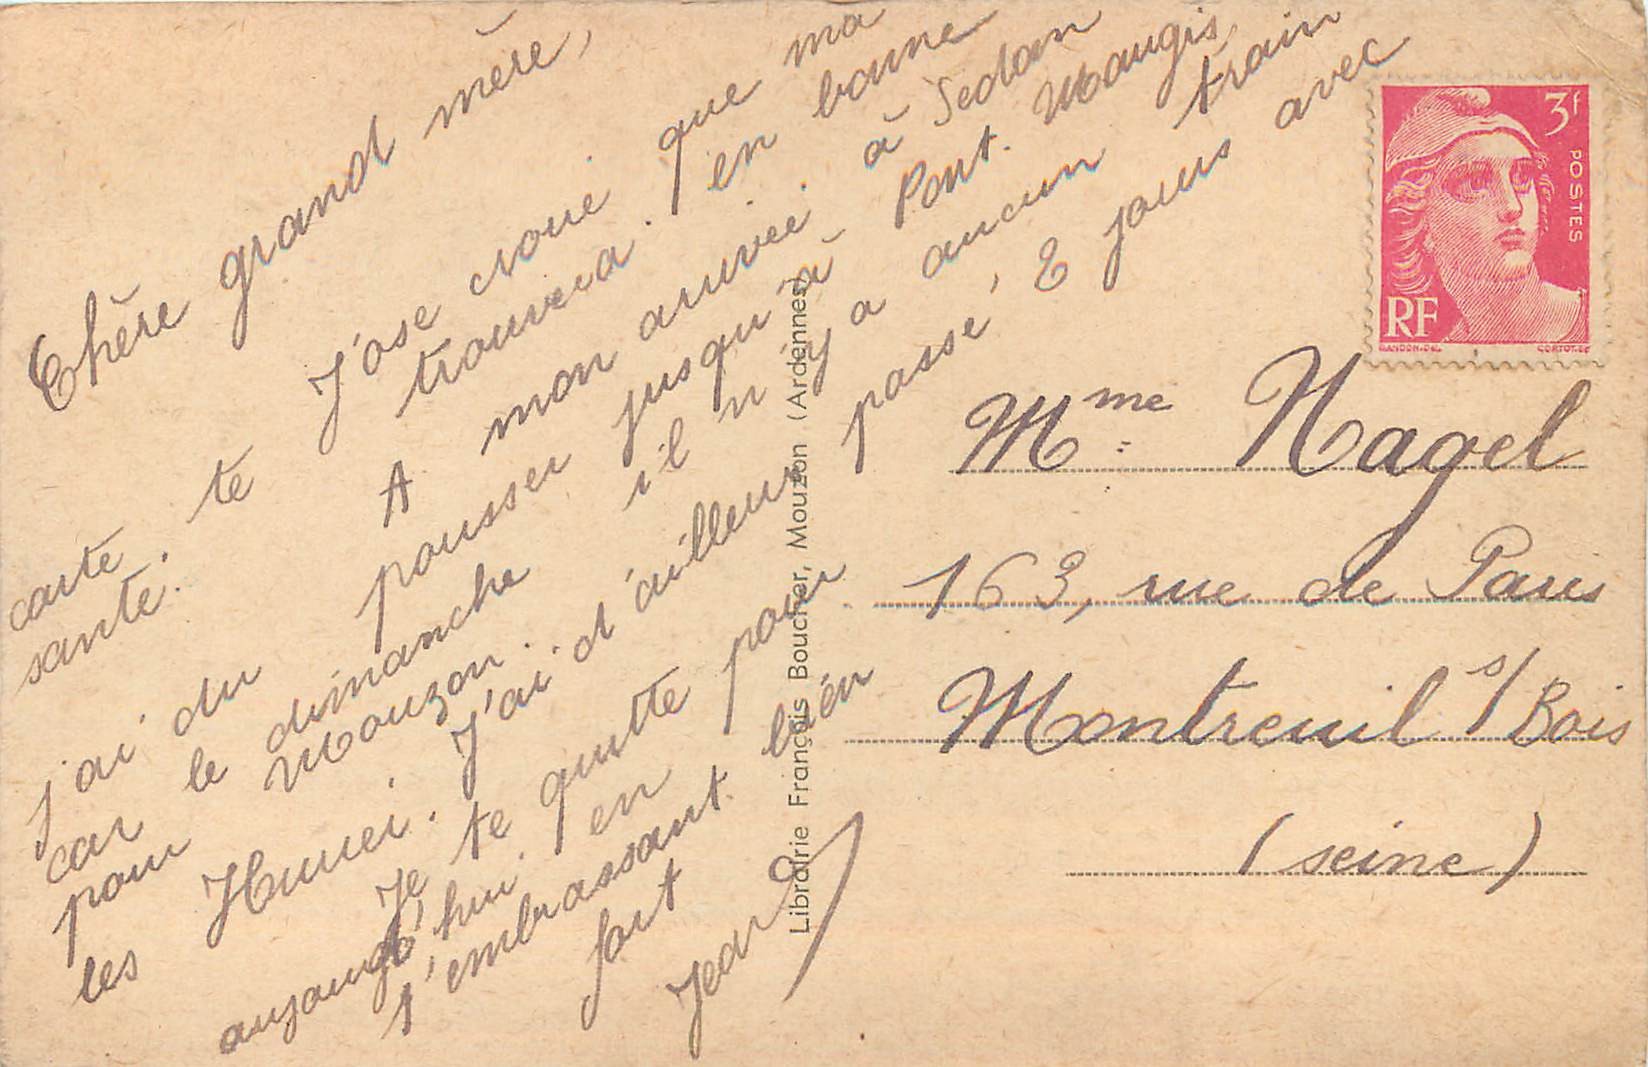 Chère grand mère,
J'ose croire que ma
carte te trouvera en bonne
santé. A mon arrivée à Sedan
j'ai du pousser jusqu'à Pont. Maugis
car le dimanche il n'y a aucun train
pour Mouzon. J'ai d'ailleur passé 2 jours avec
les
Je te quitte pour
aujourd'hui en
t'embrassant bien
fort
Jean
Librairie François Boucher, Mouzon (Ardennes)
3f
POSTES
RF
GANDON-DEL
CORTOT-SC
Mme Nagel
163, rue de Paris
Montreuil s/ Bois
(seine)